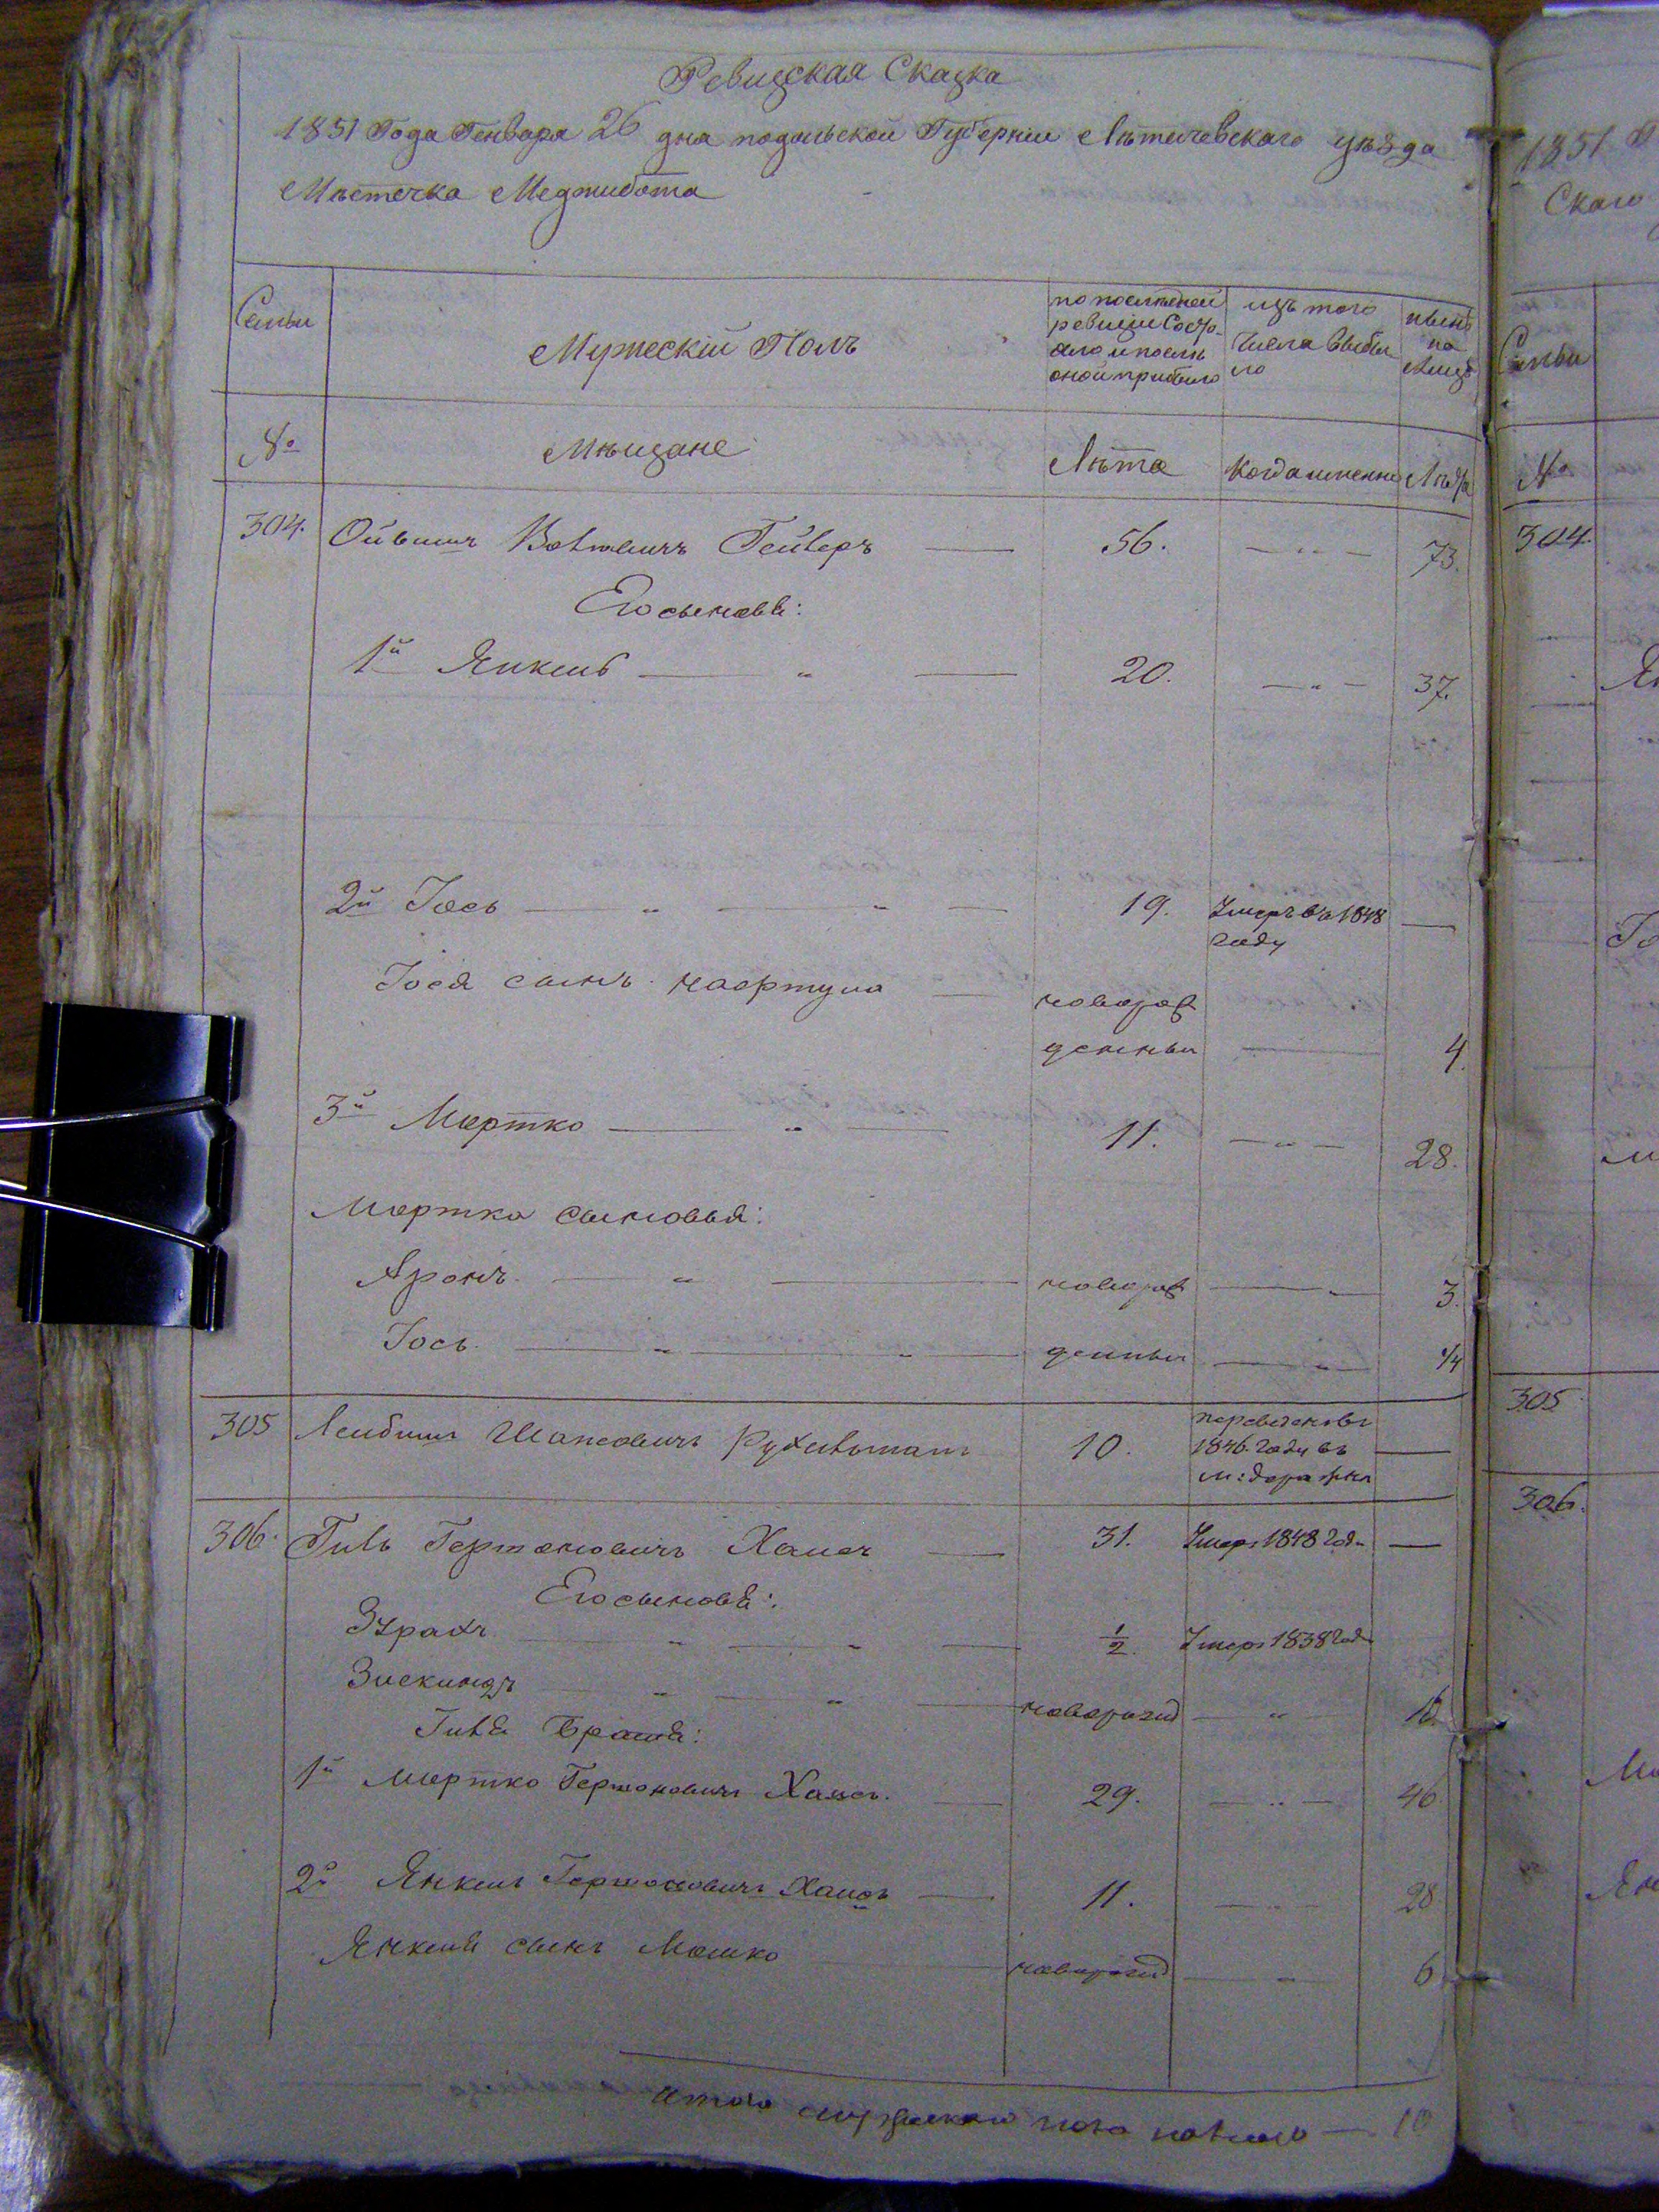 Ревизская Сказка
1851 Года Генваря 26 дня подольской Губернии Летичевскаго уезда
Местечка Меджибожа
Семьи
Мужескій Полъ
по последней
ревизіи состо-
яло и после
оной прибыло
изъ того
числа выбы
ло
ныне
на
лицо
№
Мещане
Лета
когда именно
Лета
304. Ойвишъ Гейлеръ 56. 73.
Его сыновья:
1й Янкель 20. 37.
2й Іось 19. Умеръ въ 1848
году
Іося сынъ Нафтула новорож
денный 4
3й Мортко 11. 28.
Мортка сыновья:
Аронъ новорож 3.
Іось денный 1/4
305 Лейбишъ 10. перечисленъ въ
1846 году въ
м: Деражня
306. Гиль Гершоновичъ Хаисъ 31. Умеръ 1848 год
Его сыновья:
1/2. Умеръ 1838 год
Зискиндъ новорожд 16.
Гиля братья:
1й Мортко Гершоновичъ Хаисъ. 29. 46.
2й Янкель Гершоновичъ Хаисъ 11. 28
Янкеля сынъ Мошко новорожд 6
Итого мужескаго пола на лицо 10
1851
скаго
Семьи
№
304.
305
306.